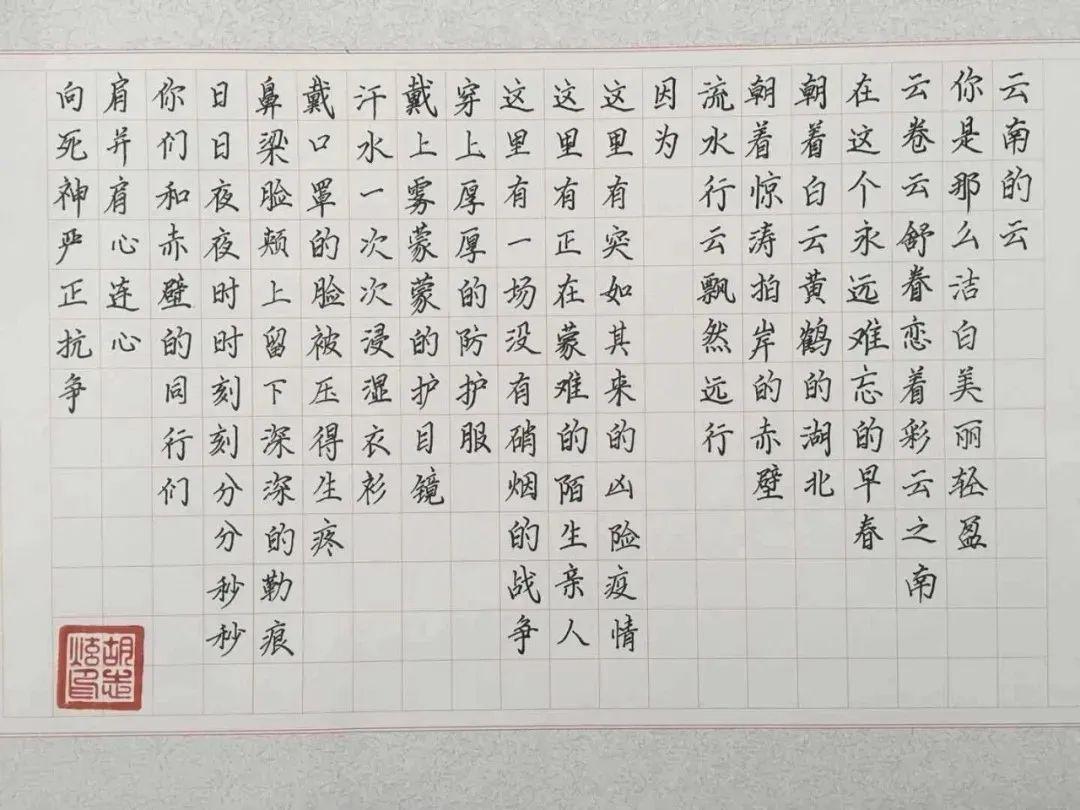 云南的云
你是那么洁白美丽轻盈
云卷云舒眷恋着彩云之南
在这个永远难忘的早春
朝着白云黄鹤的湖北
朝着惊涛拍岸的赤壁
流水行云飘然远行
因为
这里有突如其来的凶险疫情
这里有正在蒙难的陌生亲人
这里有一场没有硝烟的战争
穿上厚厚的防护服
戴上雾蒙蒙的护目镜
汗水一次次浸湿衣衫
戴口罩的脸被压得生疼
鼻梁脸颊上留下深深的勒痕
日日夜夜时时刻刻分分秒秒
你们和赤壁的同行们
肩并肩心连心
向死神严正抗争